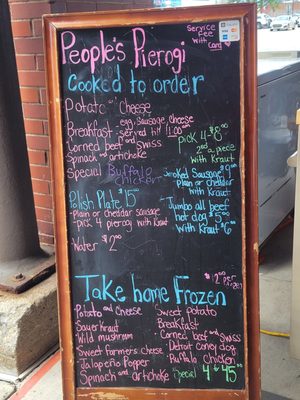 Service
Fee
with
card
People's Pierogi
Cooked to order
Potato and Cheese
egg, Sausage, Cheese
Breakfast served til 11:00am
Corned beef and Swiss
Spinach and artichoke
Special Buffalo
chicken
Pick 4 - 8.00
2nd a piece
with Kraut
Smoked Sausage $9.00
Plain or cheddar
with Kraut
Polish Plate $15.00
- Plain or cheddar sausage
- pick 4 pierogi with kraut
Jumbo all beef
hot dog $5.00
with Kraut $6.00
Water $2.00
Take home Frozen
$12.00 per
Potato and Cheese
Sauer Kraut
Wild mushroom
Sweet Farmers cheese
Jalapeño Popper
Spinach and artichoke
Sweet potato
Breakfast
Corned beef and Swiss
Detroit Coney dog
Buffalo chicken
Special 4 for 45.00